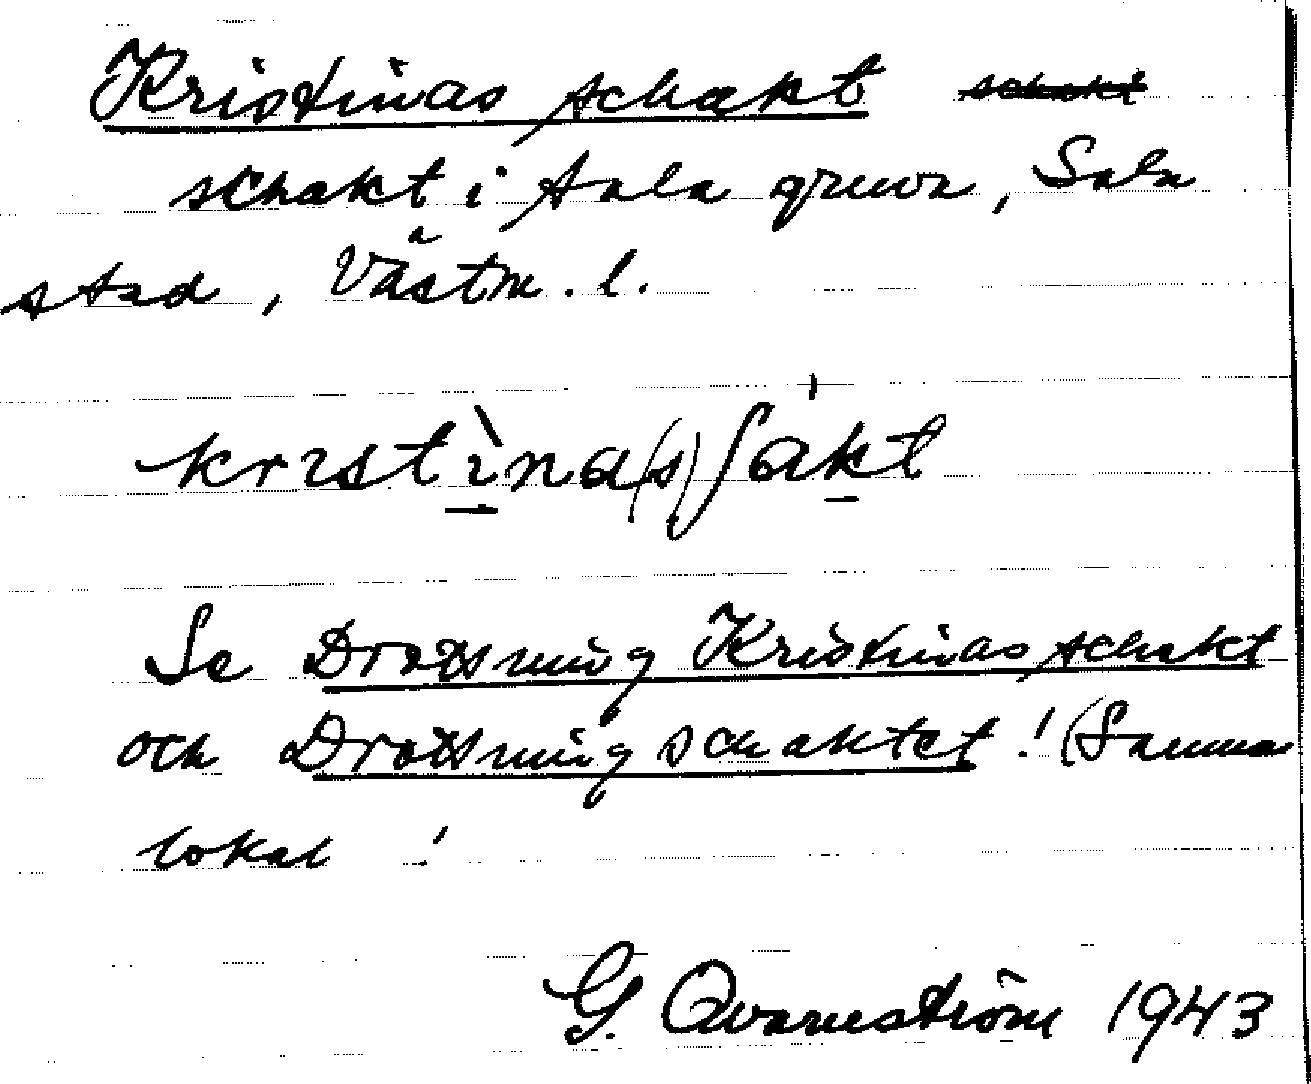 Kristinas schakt schakt
schakt i Sala gruva, Sala
stad, Västm. l.
kristìna(s)ʃakt
Se Drottning Kristinas schakt
och Drottningschaktet! (Samma
lokal!
G. Qvarnström 1943